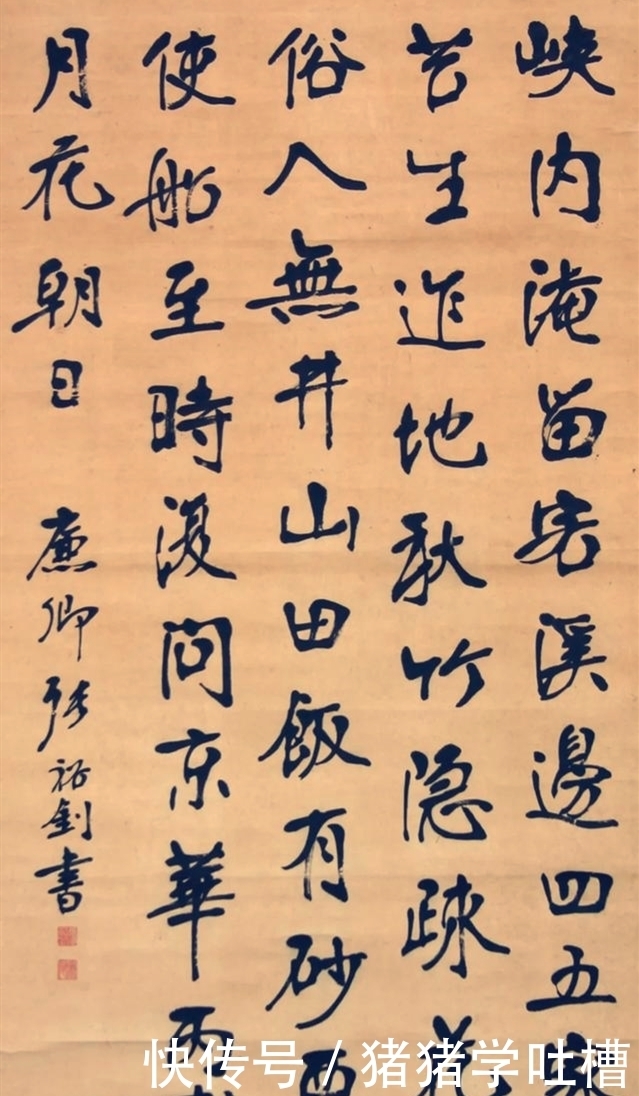 峽内淹留客溪邊四五家
苔生迮地秋竹隐疎花
俗人無井山田飯有砂西
使船至時復問京華
月花朝日 廉卿張裕釗書
快传号 / 猪猪学吐槽